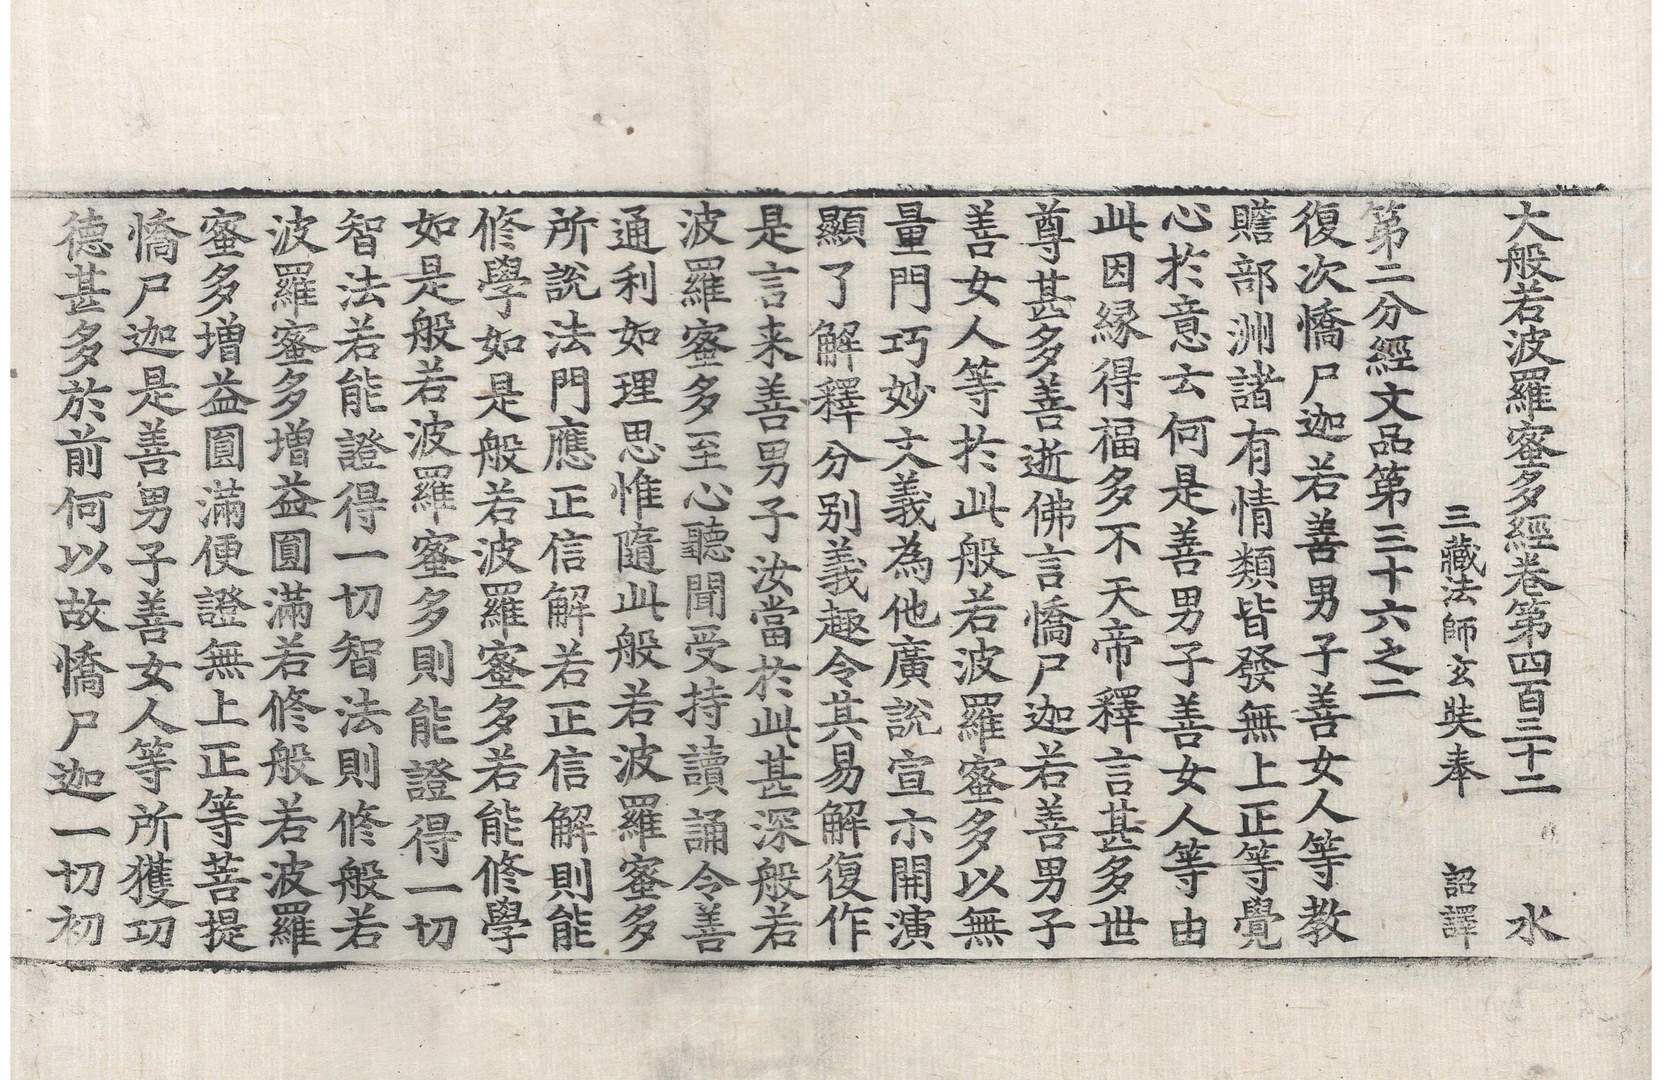 大般若波羅蜜多經卷第四百三十二 水
三藏法師玄奘奉 詔譯
第二分經文品第三十六之二
復次憍尸迦若善男子善女人等教
贍部洲諸有情類皆發無上正等覺
心於意云何是善男子善女人等由
此因緣得福多不天帝釋言甚多世
尊甚多善逝佛言憍尸迦若善男子
善女人等於此般若波羅蜜多以無
量門巧妙文義為他廣說宣示開演
顯了解釋分別義趣令其易解復作
是言来善男子汝當於此甚深般若
波羅蜜多至心聽聞受持讀誦令善
通利如理思惟隨此般若波羅蜜多
所說法門應正信解若正信解則能
修學如是般若波羅蜜多若能修學
如是般若波羅蜜多則能證得一切
智法若能證得一切智法則修般若
波羅蜜多增益圓滿若修般若波羅
蜜多增益圓滿便證無上正等菩提
憍尸迦是善男子善女人等所獲功
德甚多於前何以故憍尸迦一切初